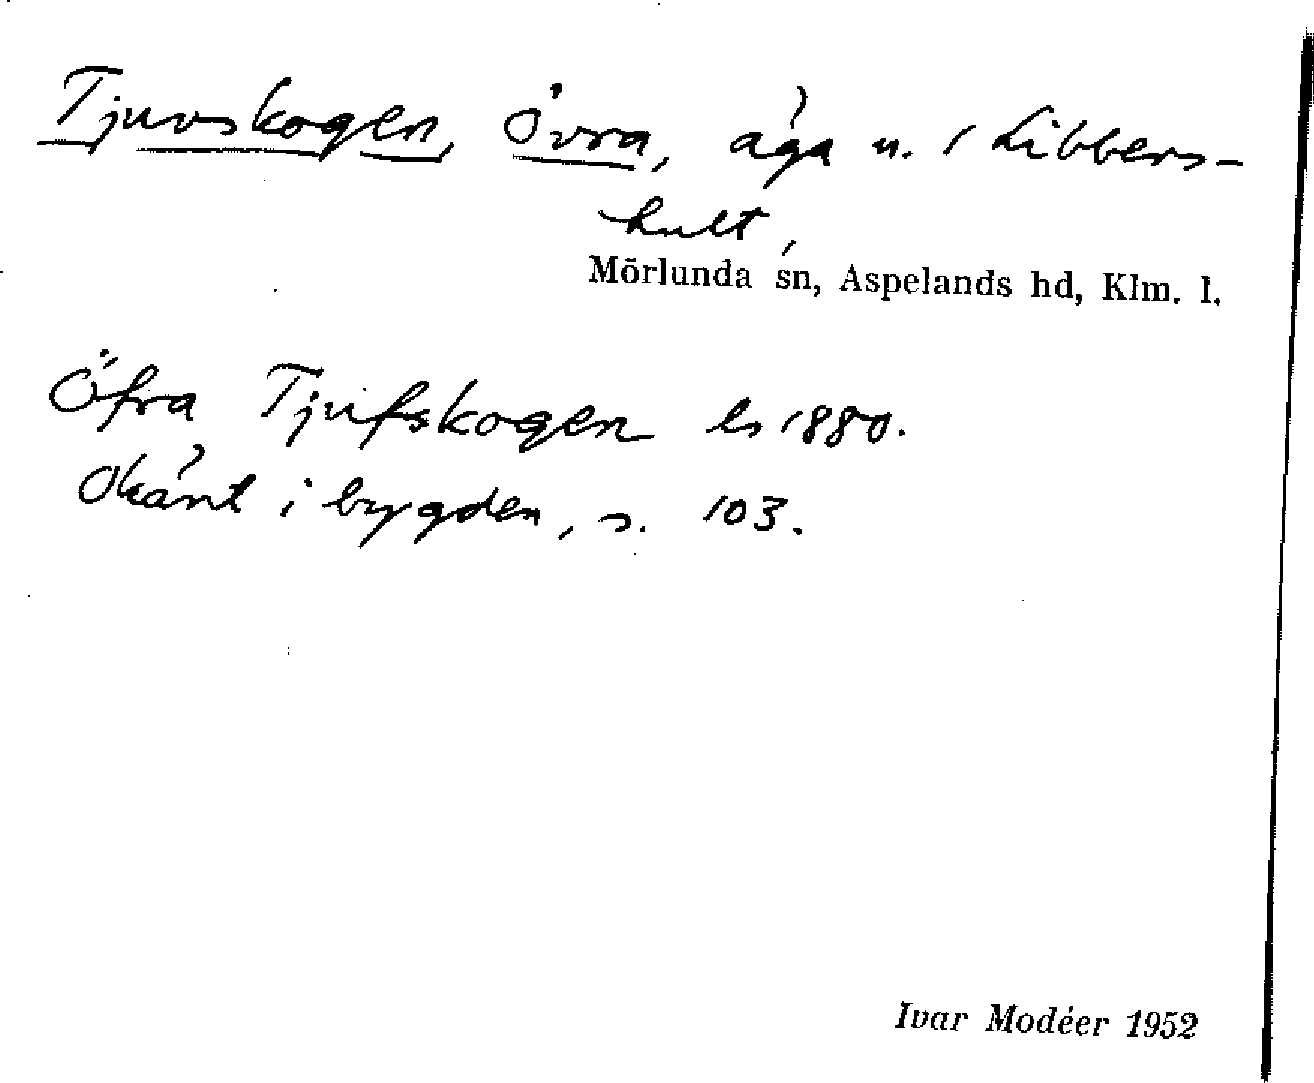 Tjuvskogen, Övra, äga u. 1 Libbers-
hult,
Mörlunda sn, Aspelands hd, Klm. l.
Öfra Tjufskogen ls 1880.
Okänt i bygden, s. 103.
Ivar Modéer 1952